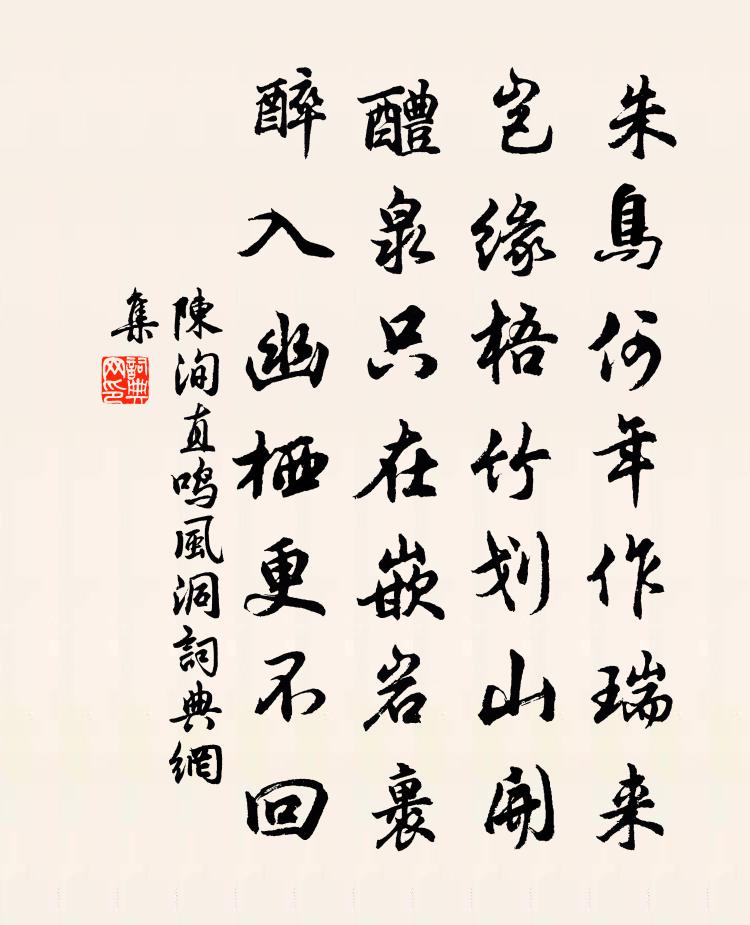 朱鳥何年作瑞来
岂缘梧竹划山開
醴泉只在嵌岩裏
醉入幽栖更不回
陳洵直鸣風洞詞典網
集
詞典网印